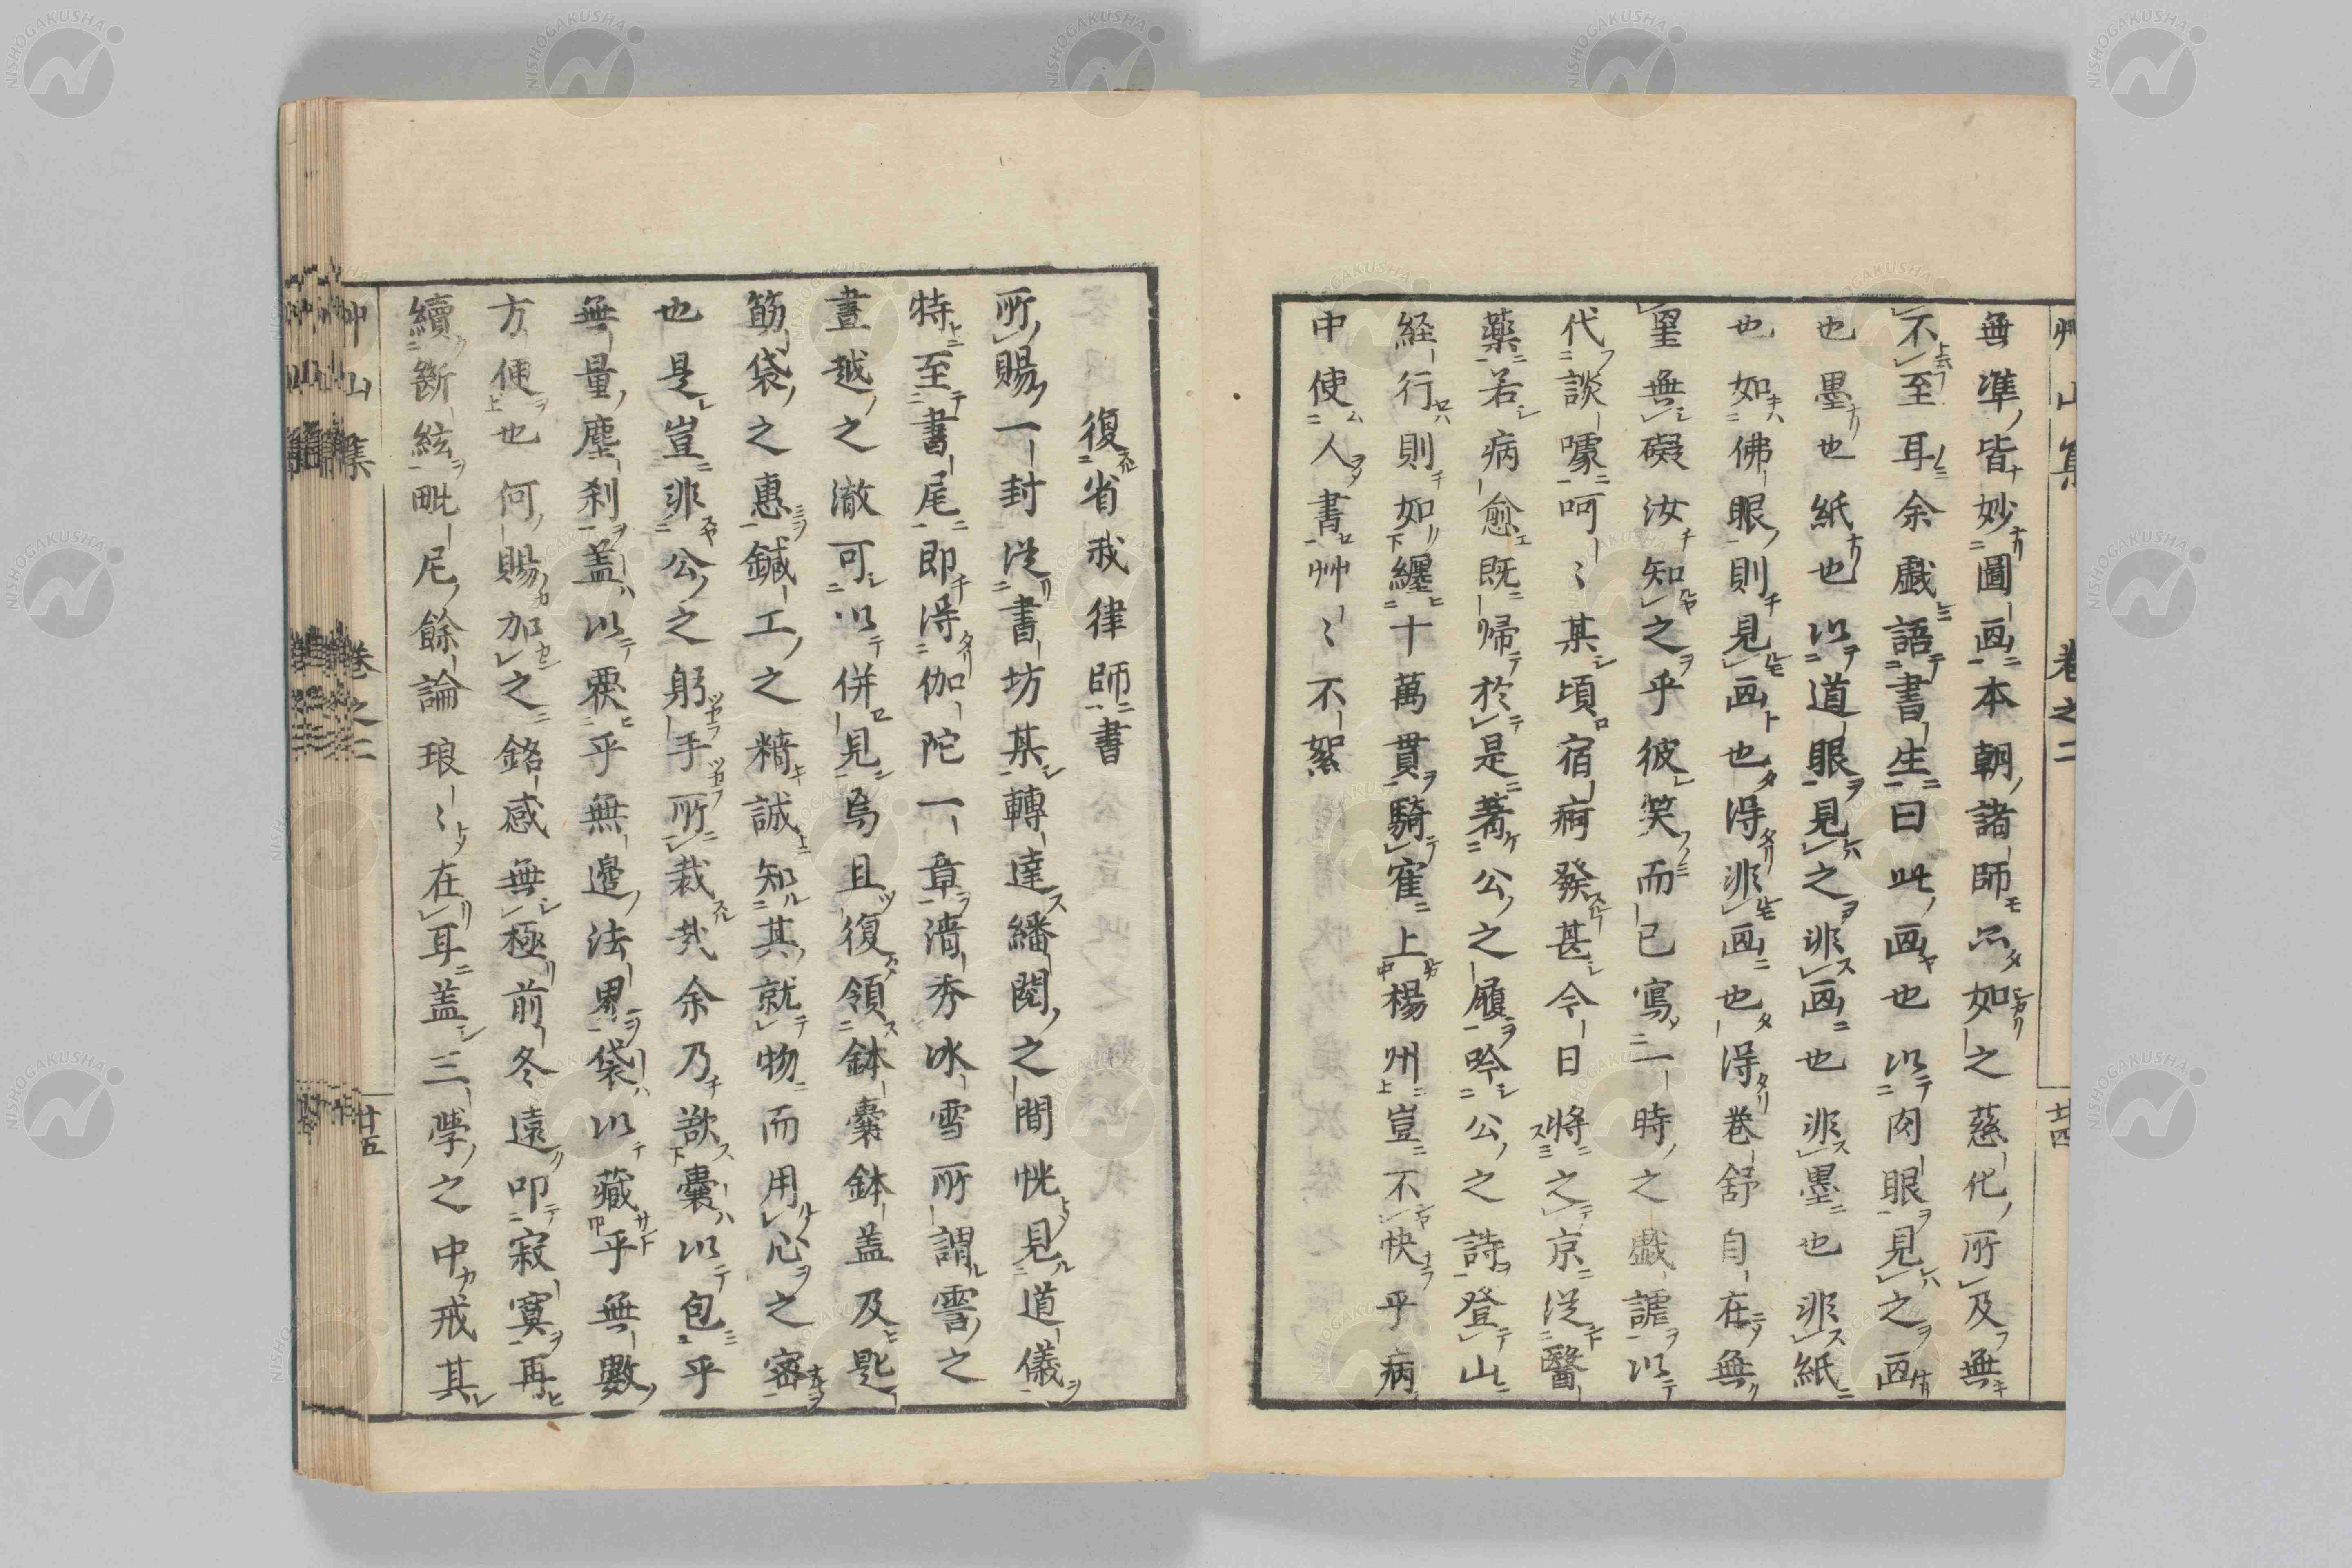 艸山集 卷之二 廿四
無準皆妙圖画本朝諸師亦如之慈化所及無
不至耳余戲語書生曰此画也以肉眼見之画
也墨也紙也以道眼見之非画也非墨也非紙
也如佛眼則見画也得非画也得卷舒自在無
罣無礙汝知之乎彼笑而已寫一時之戲謔以
代談噱呵〻某頃宿痾發甚今日將之京從醫
藥若病愈既歸於是著公之履吟公之詩登山
経行則如纏十萬貫騎寉上楊州豈不快乎病
中使人書艸〻不絮
復省我律師書
所賜一封從書坊某轉達繙閱之間恍見道儀
特至書尾即得伽陀一章淸秀冰雪所謂霅之
晝越之澈可以併見焉且復領鉢囊鉢盖及匙
筯袋之惠鍼工之精誠知其就物而用心之密
也是豈非公之躬手所裁㢤余乃歆囊以包乎
無量塵刹盖以覂乎無邊法界袋以藏乎無數
方便也何賜加之銘感無極前冬遠叩寂寞再
續斷絃毗尼餘論琅〻在耳盖三學之中戒其
艸山集 卷之二 廿五